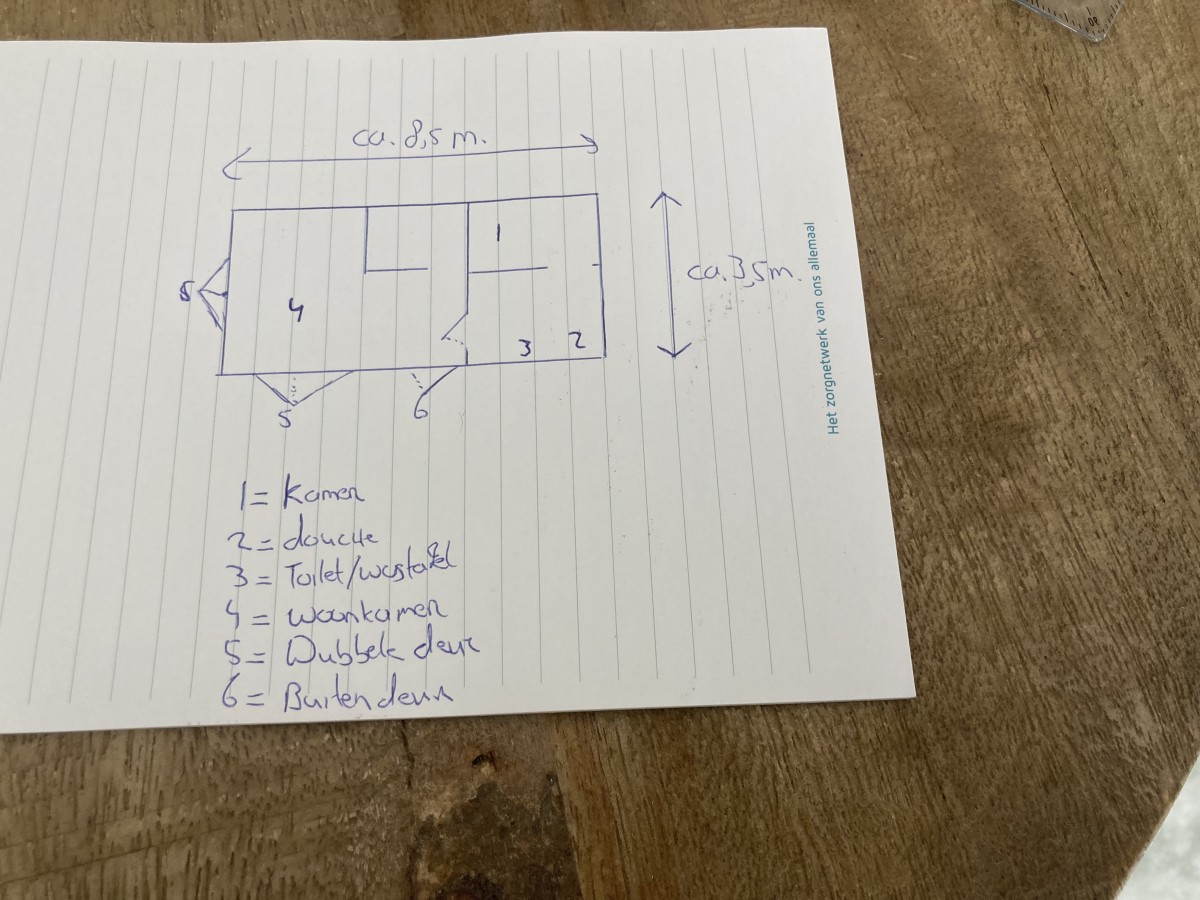 ca. 8,5 m.
1
ca. 3,5m.
5
4
3
2
5
6
1 = Kamer
2 = douche
3 = Toilet/wastafel
4 = woonkamer
5 = Dubbele deur
6 = Buitendeur
Het zorgnetwerk van ons allemaal